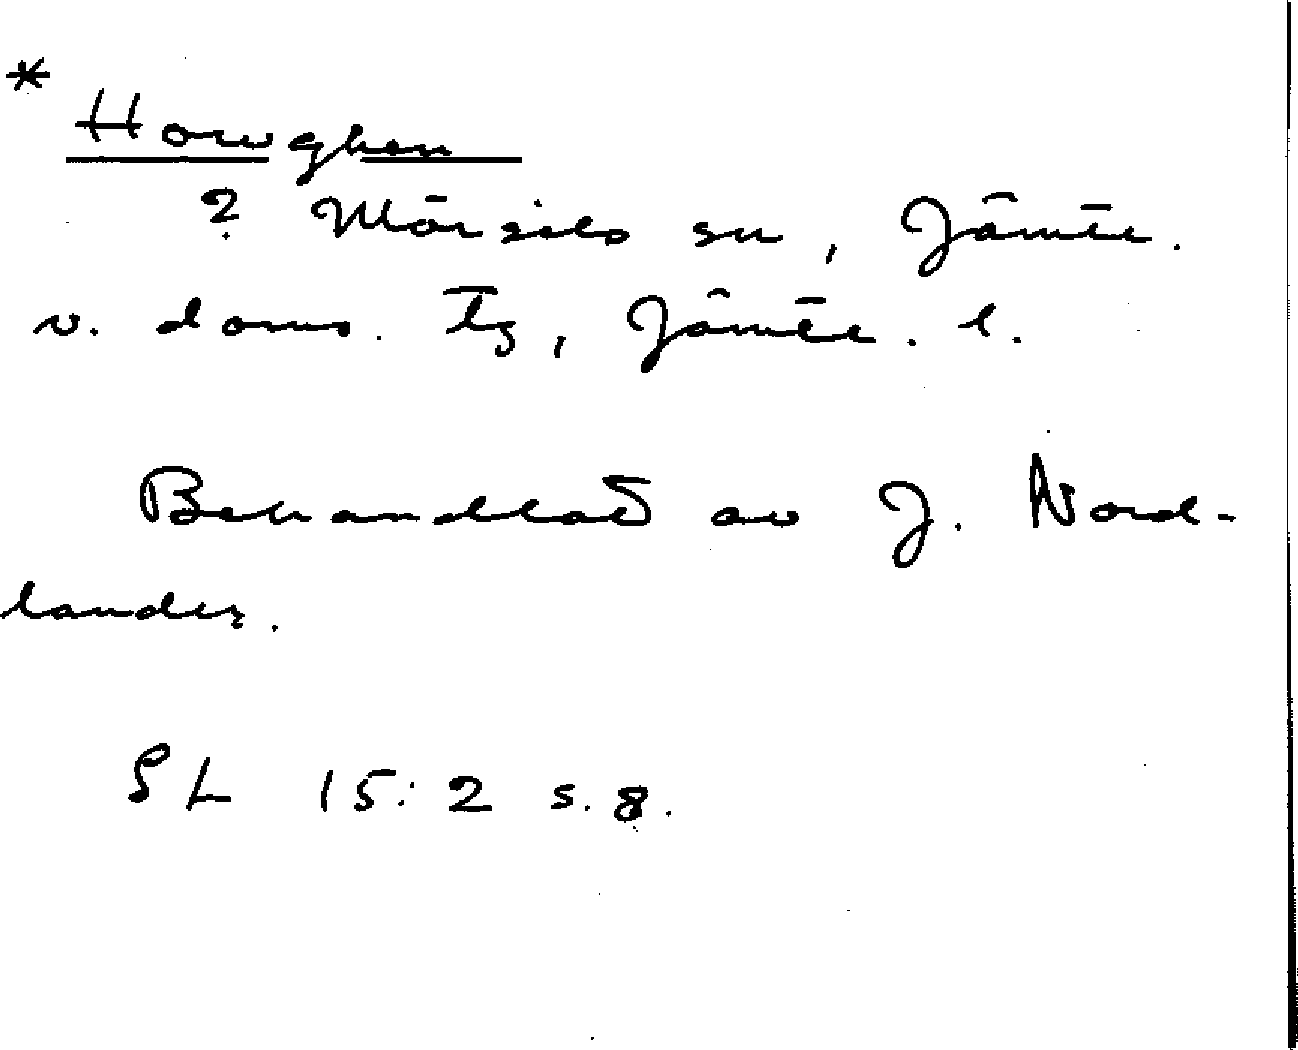 *
Horwghen
? Mörsils sn, Jämtl.
v. doms. tg, Jämtl. l.
Behandlat av J. Nord-
lander.
SL 15:2 s. 8.